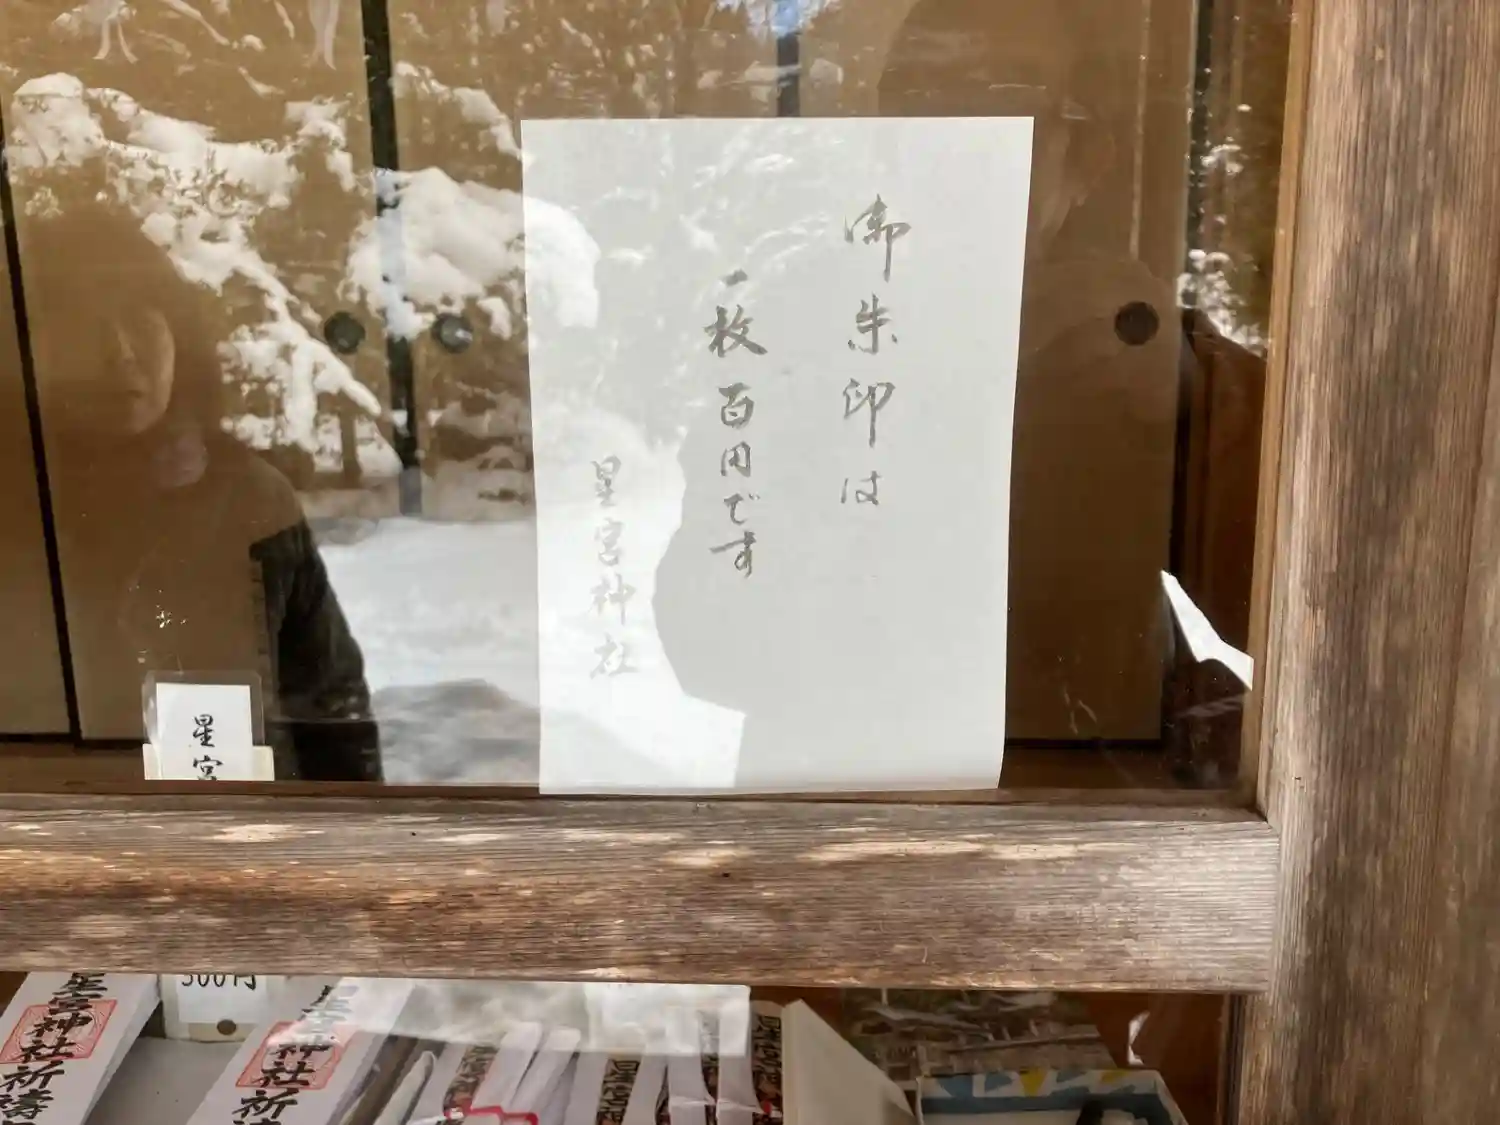 御朱印は
一枚百円です
星宮神社
星宮
500円
星宮神社祈祷
宮神社祈